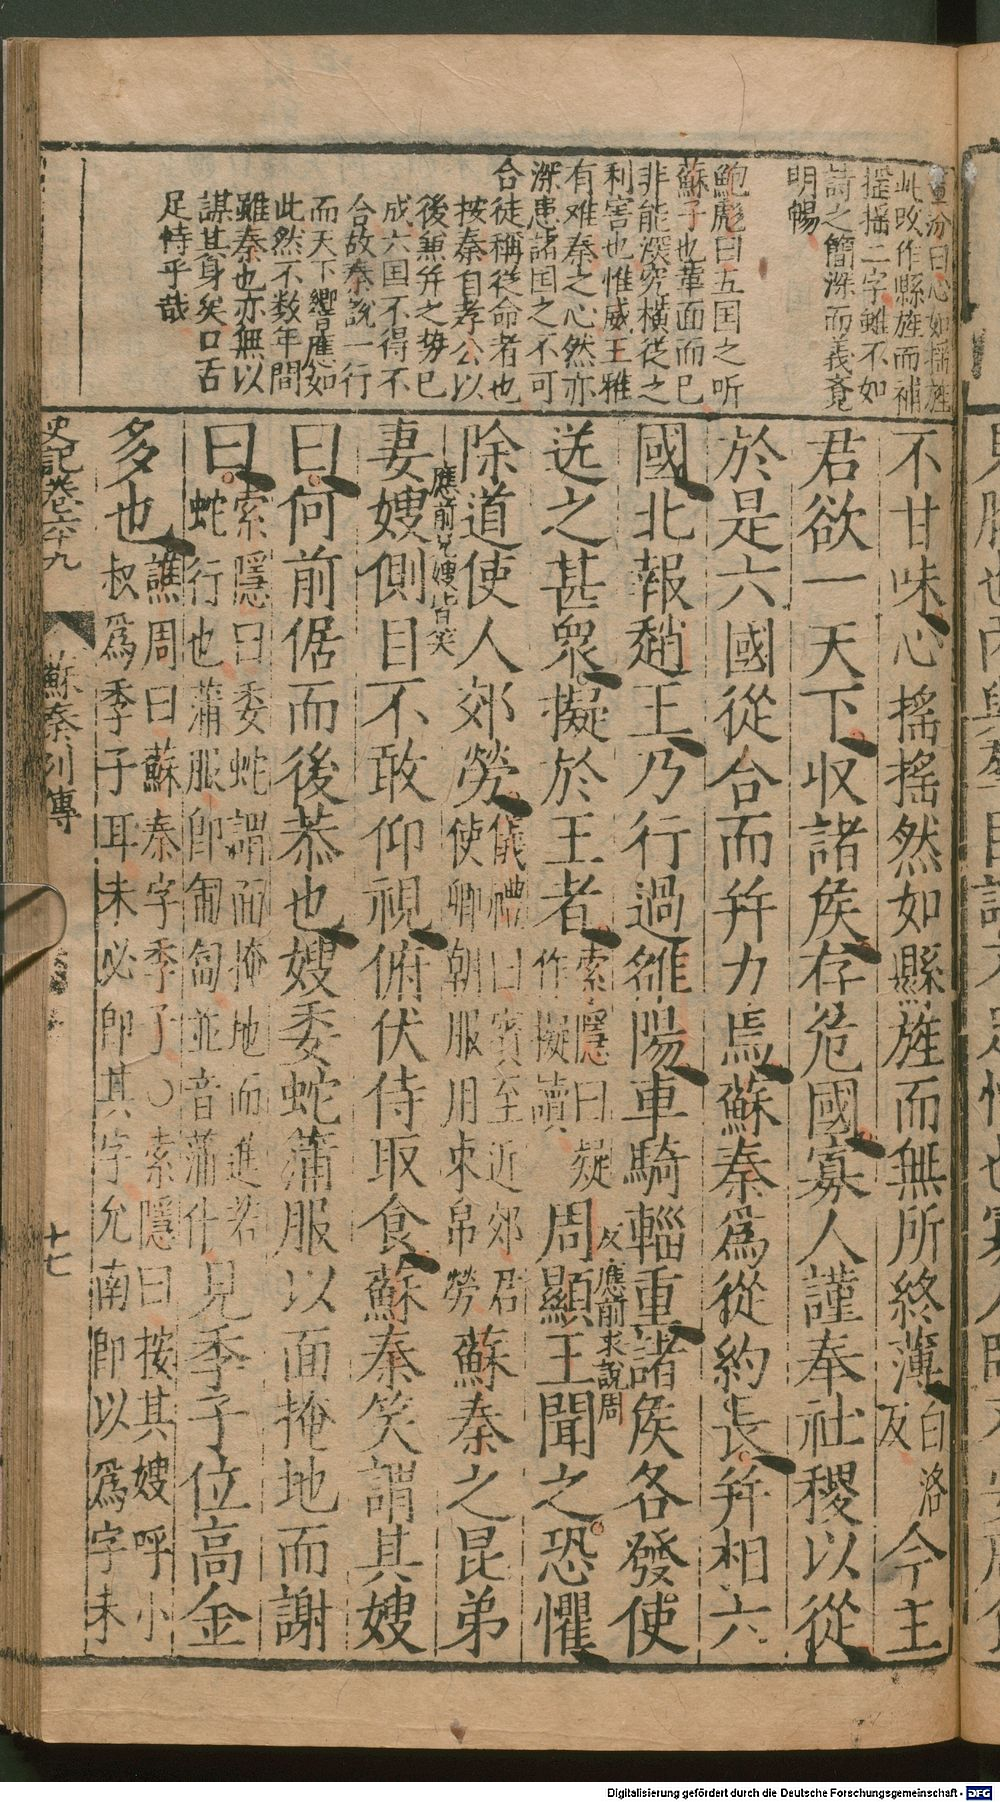 董份曰心如搖旌
此改作縣旌而補
搖搖二字雖不如
詩之簡深而義竟
明暢
鮑彪曰五国之听
蘇子也革面而已
非能深究橫從之
利害也惟威王雅
有难秦之心然亦
深患諸国之不可
合徒稱從命者也
按秦自孝公以
後無并之势已
成六国不得不
合故秦說一行
而天下響應如
此然不数年間
雖秦也亦無以
謀其身矣口舌
足恃乎哉
不甘味心搖搖然如縣旌而無所終薄
白洛
反
今主
君欲一天下收諸侯存危國寡人謹奉社稷以從
於是六國從合而并力焉蘇秦為從約長并相六
國北報趙王乃行過雒陽車騎輜重諸侯各發使
送之甚眾擬於王者
索隱曰疑
作擬讀
周顯王聞之恐懼
反應前求說周
除道使人郊勞
儀禮曰賓至近郊君
使卿朝服用束帛勞
蘇秦之昆弟
應前兄嫂皆笑
妻嫂側目不敢仰視俯伏侍取食蘇秦笑謂其嫂
曰何前倨而後恭也嫂委蛇蒲服以面掩地而謝
曰
索隱曰委蛇謂面掩地而進若
蛇行也蒲服即匍匐並音蒲仆
見季子位高金
多也
譙周曰蘇秦字季子○索隱曰按其嫂呼小
叔為季子耳未必即其字允南即以為字未
史記卷六十九
蘇秦列傳
十七
Digitalisierung gefördert durch die Deutsche Forschungsgemeinschaft - DFG